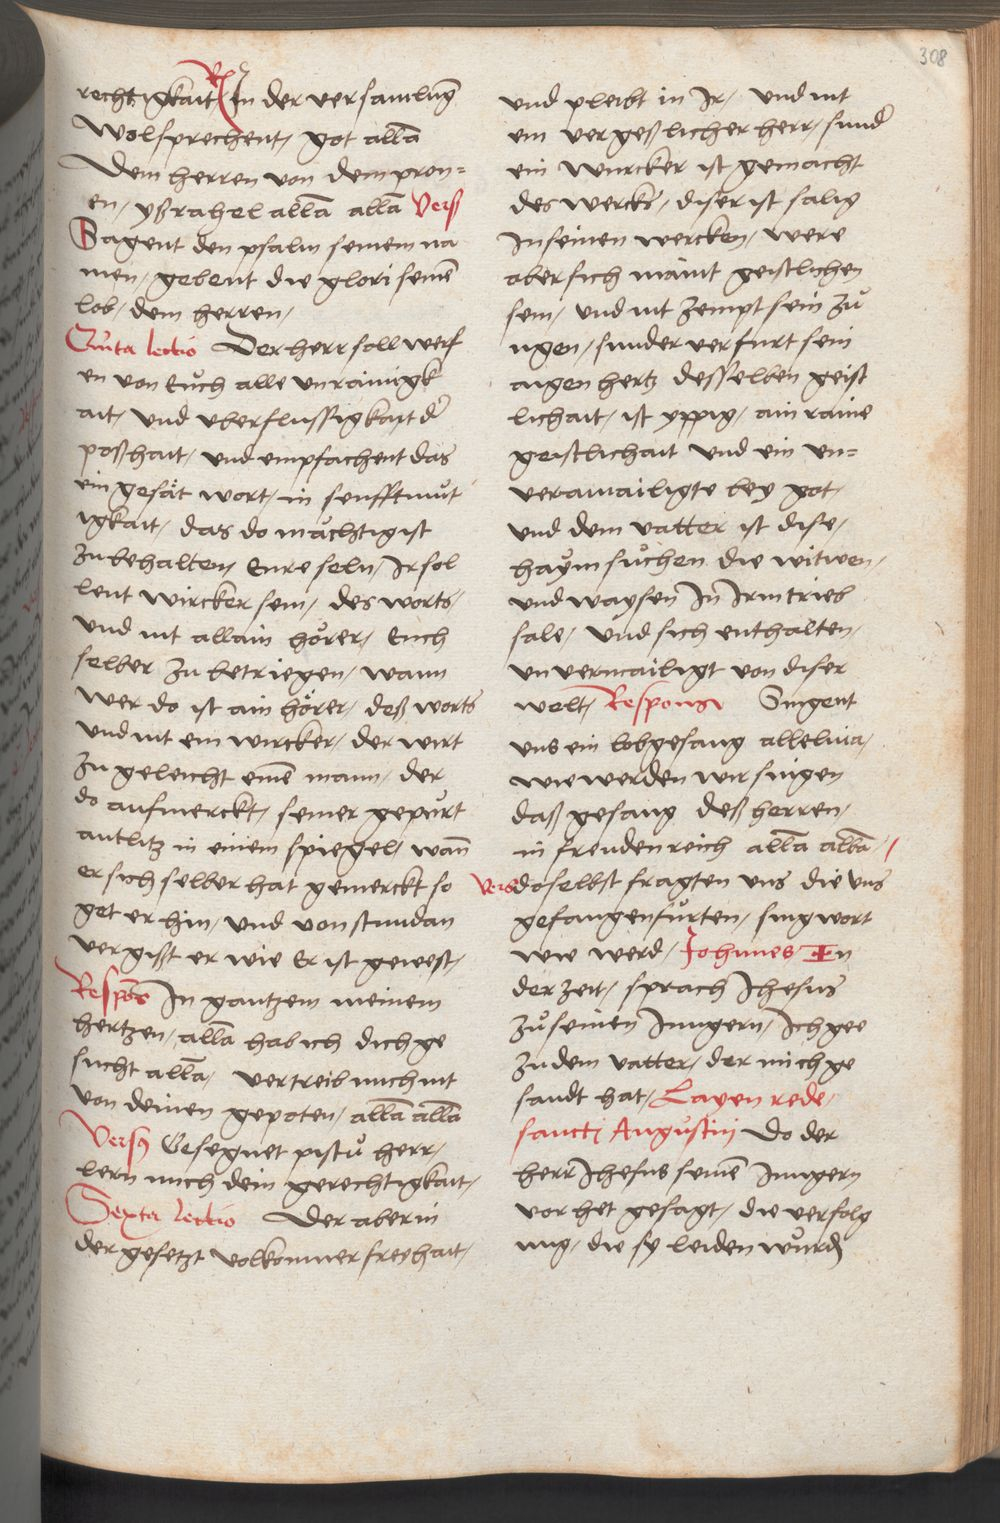 308
rechtigkait, R In der versamlūg
Wolsprechent, got allā
Dem herren von dem pron=
en, ysrahel allā allā Vers
Sagent den psalm seinem na
men, gebent die glori seinē
lob, dem herren,
Quīta lectio Der herr soll werf
en von Euch alle vnrainigk
ait, vnd vberflussigkait d̄
poßhait, vnd empfachent das
ein gesät wort, in senfftmut
igkait, das do mächtig ist
zu behalten, Eure seln, Ir sol
lent wircker sein, des worts,
vnd nit allain hörer, Euch
selber zu betriegen, wann
wer do ist ain hörer, deß worts
vnd nit ein wircker, der wirt
zu geleicht einē mann, der
do aufmerckt, seiner gepurt
antlitz in einem spiegel, wañ
er sich selber hat gemerckt so
get er hin, vnd von stundan
vergißt er wie Er ist gewest,
Respōs In gantzem meinem
hertzen, allā hab ich dich ge
sucht allā, vertreib mich nit
von deinen gepoten, allā allā
Vers Gesegnet pistu herr,
lern mich dein gerechtigkait,
Sexta lectio Der aber in
der gesetzt volkomner freyhait,
vnd pleibt in Ir, vnd nit
ein vergeßlicher herr, sund̄
ein wurcker ist gemacht
des wercks, diser ist salig
In seinen wercken, were
aber sich maint geistlichen
sein, vnd nit zempt sein zu
ngen, sunder verfurt sein
aigen hertz desselben geist
lichait, ist yppig, ain raine
geistlichait vnd ein vn=
veramailigte bey got,
vnd dem vatter ist dise,
haymsuchen die witwen,
vnd waysen In Irm trieb
sale, vnd sich enthalten,
vnvermailigt von diser
welt, Respons Singent
vns ein lobgesang alleluia,
wie werden wir singen
daß gesang deß herren,
in freudenreich allā allā,
Vers doselbst fragten vns die vns
gefangen furten, sing wort
wie werd, Johannes In
der zeit, sprach Ihesus
zu seinen Jungern, Ich gee
zu dem vatter, der mich ge
sandt hat, Layen rede,
sancti Augustinj Do der
herr Ihesus seinē Jungern
vor het gesagt, die verfolg
ung, die sy leiden wurdn̄